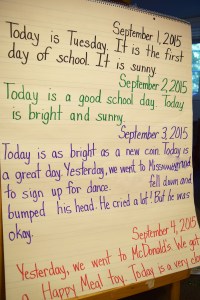 September 1, 2015
Today is Tuesday. It is the first
day of school. It is sunny.
September 2, 2015
Today is a good school day. Today
is bright and sunny.
September 3, 2015
Today is as bright as a new coin. Today is
a great day. Yesterday, we went to Miss
to sign up for dance. fell down and
bumped his head. He cried a lot! But he was
okay.
September 4, 2015
Yesterday, we went to McDonald's. We got
a Happy Meal toy. Today is a very